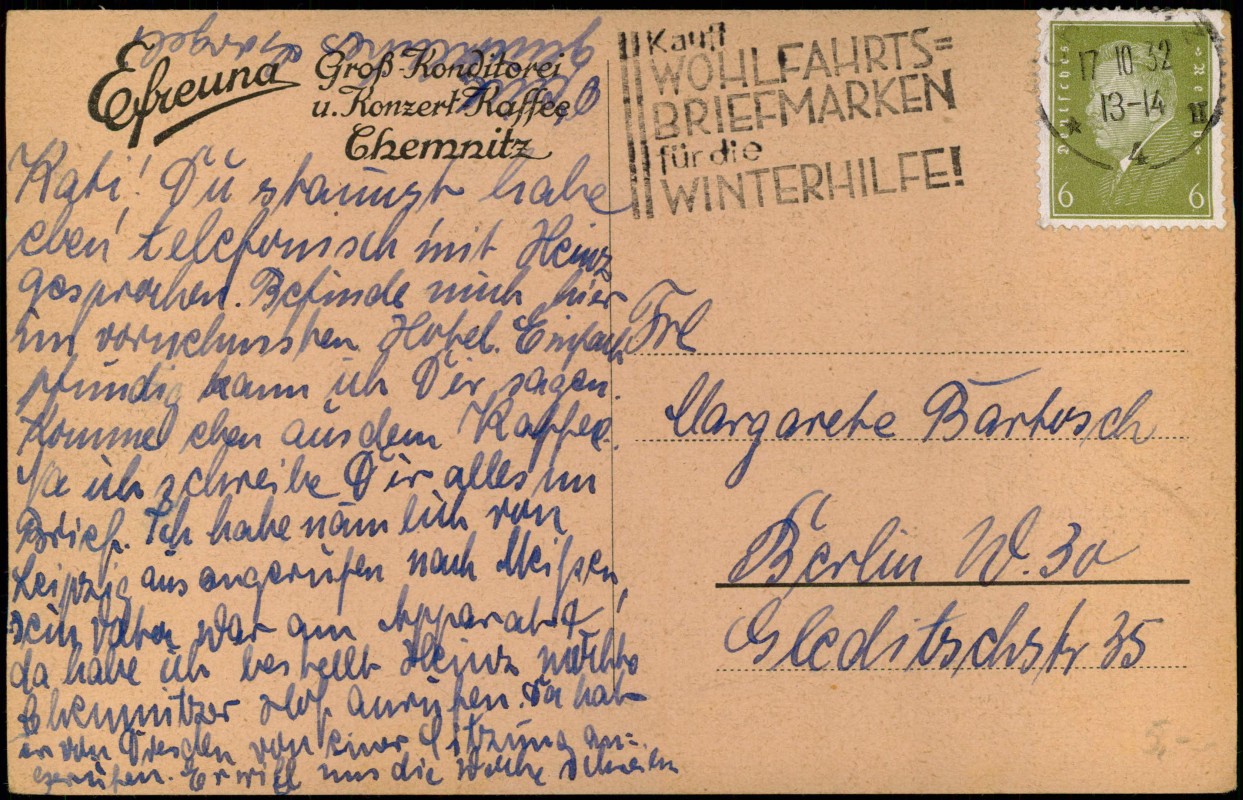 Efreuna
Groß-Konditorei
u. Konzert-Kaffee
Chemnitz
Kauft
WOHLFAHRTS=
BRIEFMARKEN
für die
WINTERHILFE!
17 10 32
13-14
4
Deutsches Reich
6 6
Kati! Du staunst habe
eben telefonisch mit Heinz
gesprochen. Befinde mich hier
im vornehmsten Hotel. Einfach
pfundig kann ich Dir sagen.
Komme eben aus dem Kaffee.
Na ich schreibe Dir alles im
Brief. Ich habe nämlich von
Leipzig aus angerufen nach Meißen,
sein Vater war am Apparat
da habe ich bestellt Heinz möchte
Chemnitzer Hof anrufen. Da hat
er von Dresden von einer Sitzung an=
gerufen. Er will uns die Woche schreiben
Frl
Margarete Bartosch
Berlin W. 30
Gleditschstr 35
5,-